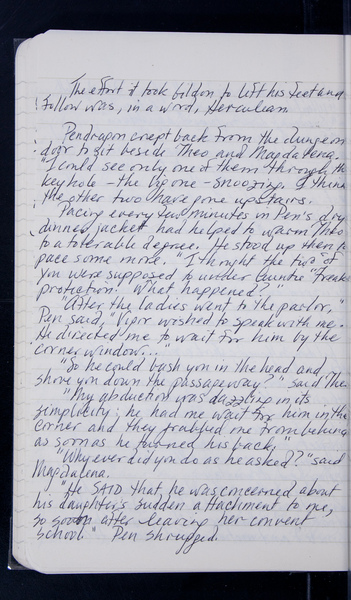 The effort it took Gildon to lift his feet and
follow was, in a word, Herculean.
Pendragon crept back from the dungeon
door to sit beside Theo and Magdalena.
"I could see only one of them through the
keyhole – the big one – snoozing. I think
the other two have gone upstairs.
Pacing every few minutes in Pen's dry
dinner jacket had helped to warm Theo
to a tolerable degree. He stood up then to
pace some more. "I thought the two of
you were supposed to under Auntie
protection. What happened?"
"After the ladies went to the parlor,"
Pen said, "Vipir wished to speak with me.
He directed me to wait for him by the
corner window..."
"So he could bash you in the head and
shove you down the passageway?" said Theo.
"My abduction was dazzling in its
simplicity: he had me wait for him in the
corner and they grabbed me from behind
as soon as he turned his back."
"Why ever did you do as he asked?" said
Magdalena.
"He SAID that he was concerned about
his daughter's sudden attachment to me,
so soon after leaving her convent
school." Pen shrugged.